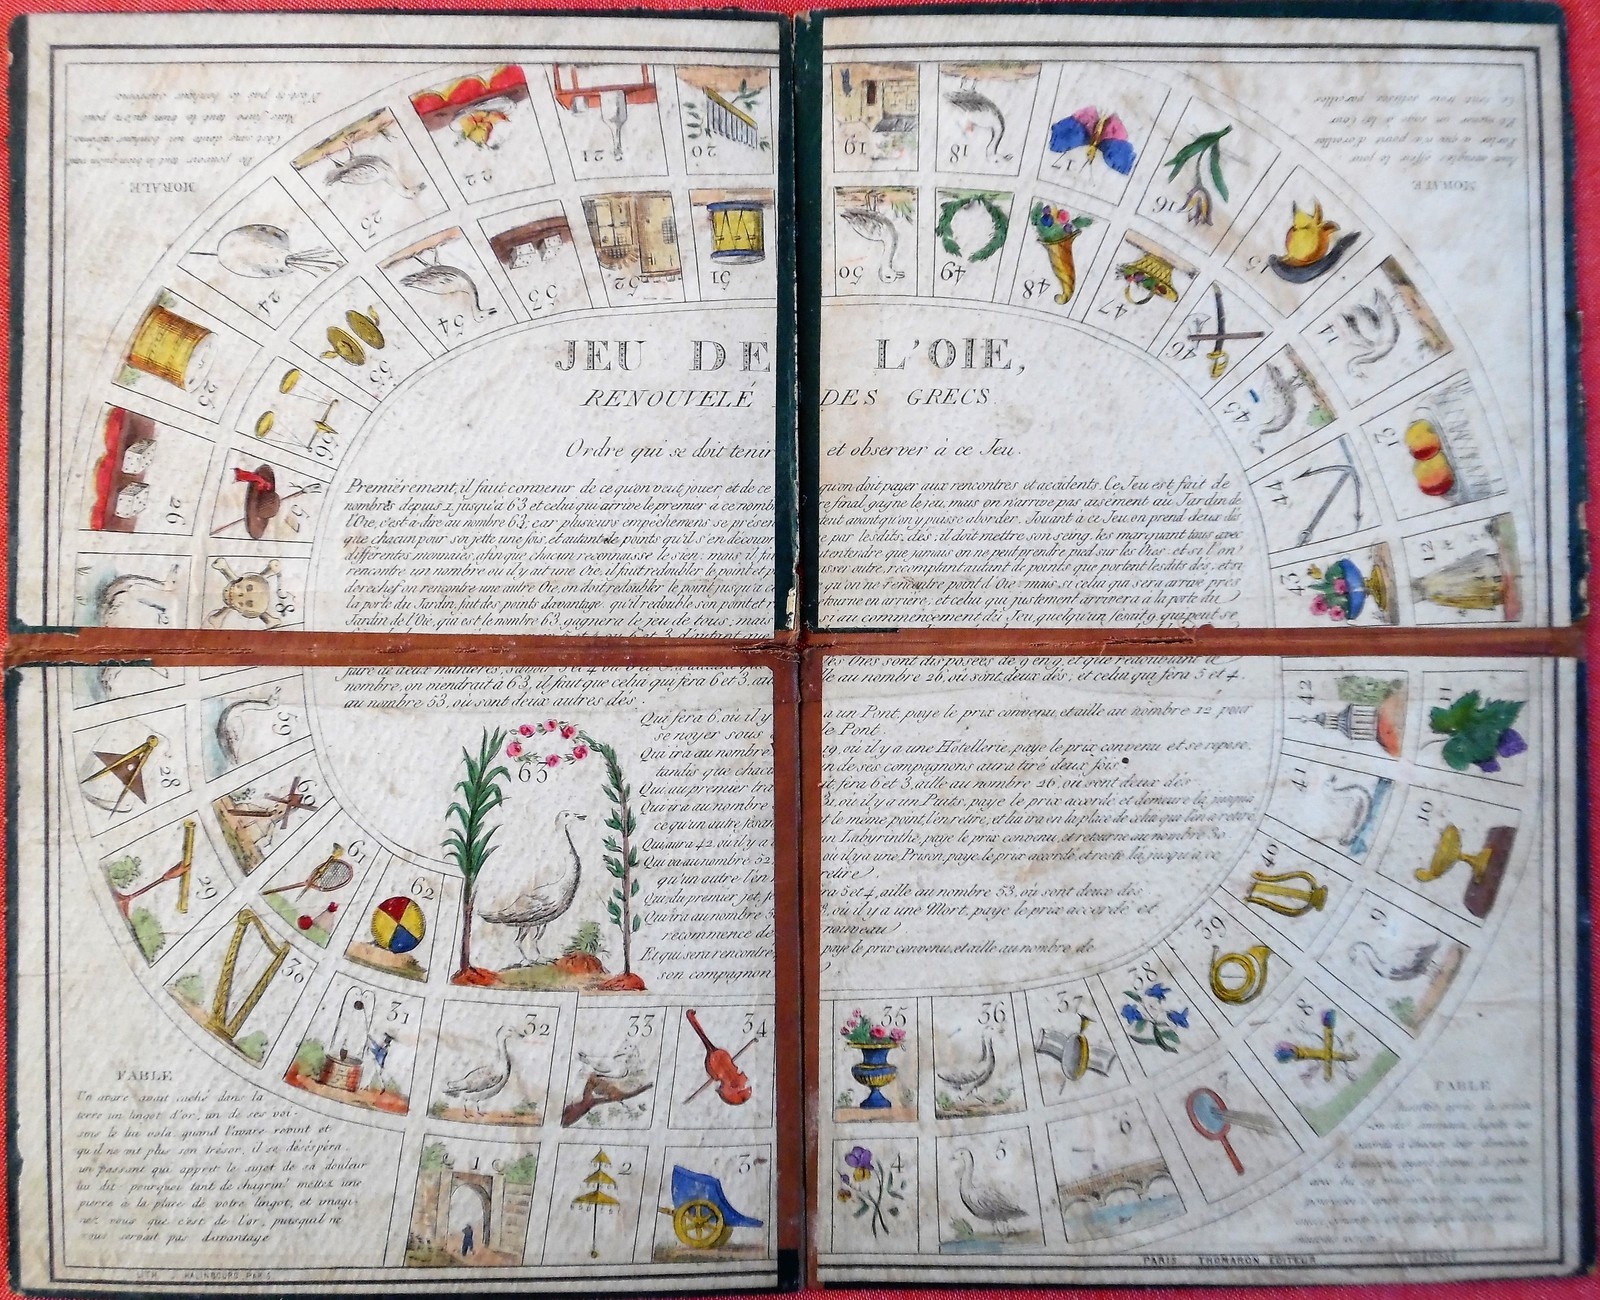 MORALE
MORALE
JEU DE L'OIE,
RENOUVELÉ DES GRECS.
Ordre qui se doit tenir et observer à ce Jeu.
Premièrement, il faut convenir de ce qu'on veut jouer, et de ce qu'on doit payer aux rencontres et accidents. Ce Jeu est fait de
nombres depuis 1, jusqu'à 63 et celui qui arrive le premier à ce nombre final, gagne le jeu, mais on n'arrive pas aisément au Jardin de
l'Oie, c'est à dire au nombre 63; car plusieurs empêchemens se présentent avant qu'on y puisse aborder. Jouant à ce Jeu, on prend deux dés
que chacun pour soi jette une fois, et autant de points qu'il s'en découvre par lesdits dés, il doit mettre son seing, les marquant tous avec
différentes monnaies, afin que chacun reconnaisse le sien; mais il faut entendre que jamais on ne peut prendre pied sur les Oies, et si l'on
rencontre un nombre où il y ait une Oie, il faut redoubler le point et passer outre, récomptant autant de points que portent lesdits dés, et si
derechef on rencontre une autre Oie, on doit redoubler le point jusqu'à ce qu'on ne rencontre point d'Oie; mais si celui qui sera arrivé près
la porte du Jardin, fait des points d'avantage, qu'il redouble son point et retourne en arrière, et celui qui justement arrivera à la porte du
Jardin de l'Oie, qui est le nombre 63, gagnera le jeu de tous; mais si au commencement du Jeu, quelqu'un fesait 9, qui peut se
faire de deux manières, les Oies sont disposées de 9 en 9, et que redoublant le
nombre, on viendrait à 63, il faut que celui qui fera 6 et 3, aille au nombre 26, où sont deux dés; et celui qui fera 5 et 4,
au nombre 53, où sont deux autres dés.
Qui fera 6, où il y a un Pont, paye le prix convenu, et aille au nombre 12 pour
se noyer sous le Pont.
Qui ira au nombre 19, où il y a une Hôtellerie, paye le prix convenu et se repose,
tandis que chacun de ses compagnons aura tiré deux fois.
Qui au premier trait fera 6 et 3, aille au nombre 26, où sont deux dés.
Qui ira au nombre 31, où il y a un Puits, paye le prix accordé et demeure là, jusqu'à
ce qu'un autre fesant le même point, l'en retire, et lui ira en la place de celui qui l'en a retiré.
Qui aura 42, où il y a un Labyrinthe, paye le prix convenu, et retourne au nombre 30
Qui va au nombre 52, où il y a une Prison, paye le prix accordé et reste là, jusqu'à ce
qu'un autre l'en retire.
Qui du premier jet, fera 5 et 4, aille au nombre 53, où sont deux dés
Qui ira au nombre 58, où il y a une Mort, paye le prix accordé et
recommence de nouveau
Et qui sera rencontré, paye le prix convenu, et aille au nombre de
son compagnon
63
1
2
3
4
5
6
8
9
10
11
12
13
14
15
16
17
18
19
20
21
22
23
24
25
26
28
29
30
31
32
33
34
35
36
37
38
39
40
41
42
43
44
45
46
47
48
49
50
51
52
53
54
55
56
57
58
59
60
61
62
FABLE
Un avare avait caché dans la
terre un lingot d'or, un de ses voi-
sins le lui vola, quand l'avare revint et
qu'il ne vit plus son trésor, il se désespéra.
un passant qui apprit le sujet de sa douleur
lui dit: pourquoi tant de chagrin? mettez une
pierre à la place de votre lingot, et imagi-
nez vous que c'est de l'or, puisqu'il ne
vous servait pas d'avantage
FABLE
PARIS. THOMARON EDITEUR